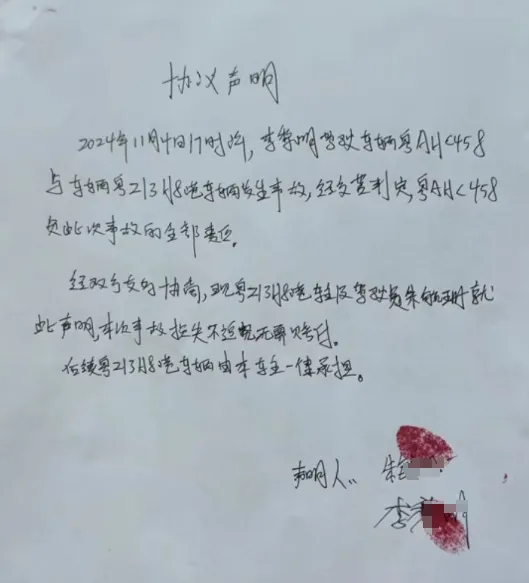 协议声明
2024年11月4日17时许，李黎明驾驶车辆粤AH<458
与车辆粤Z13H8港车辆发生事故，经交警判定，粤AH<458
负此次事故的全部责任。
经双方友好协商，现粤Z13H8港车主及驾驶员朱 就
此声明，本次事故损失不追究无需赔付。
后续粤Z13H8港车辆由本车主一律承担。
声明人：朱
李